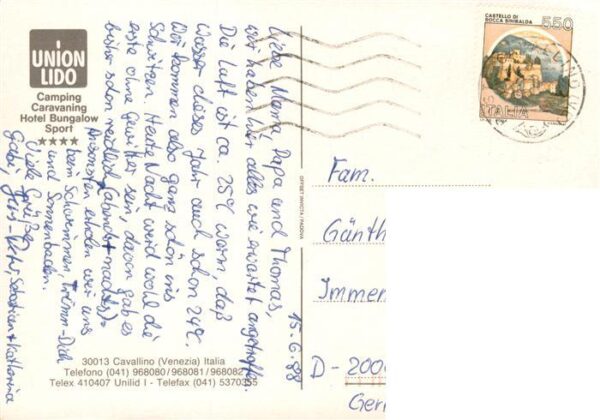 UNION
LIDO
Camping
Caravaning
Hotel Bungalow
Sport
★★★★
15.6.88
Liebe Mama, Papa und Thomas,
wir haben hier alles wie erwartet angetroffen.
Die Luft ist ca. 25°C warm, das
Wasser dieses Jahr auch schon 24°C.
Wir kommen also ganz schön ins
Schwitzen. Heute Nacht werd wohl die
erste ohne Gewitter sein, davon gab es
bisher schon reichlich (abends + nachts).
Ansonsten erholen wir uns
beim Schwimmen, Trimm-Dich
und Sonnenbaden.
Viele Grüße
Gabi, Sebastian + Katharina
30013 Cavallino (Venezia) Italia
Telefono (041) 968080/968081/968082
Telex 410407 Unilid I - Telefax (041) 5370355
OFFSET INVICTA / PADOVA
CASTELLO DI
ROCCA SINIBALDA
550
ITALIA
Fam.
Günth
Immen
D-2000
Ger